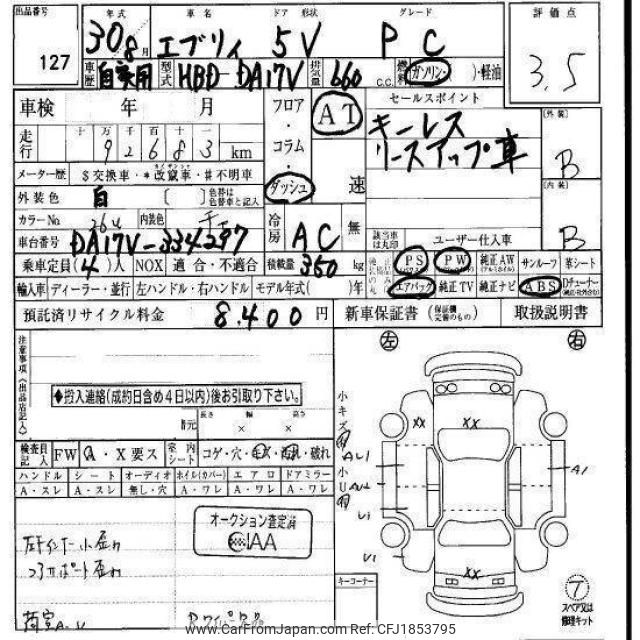 出品番号 年式 車名 ドア 形状 グレード 評価点
127 30 8月 エブリィ 5V PC 3.5
車歴 自家用 型式 HBD-DA17V 排気量 660 c.c. 燃料 ガソリン・( )・軽油
車検 年 月 フロア・コラム・ダッシュ AT 速 セールスポイント
走行 十 万 千 百 十 一
92683 km
キーレス
リースアップ車
[外装] B
メーター歴 $交換車・*改竄車・#不明車
外装色 白 [ ] 色替は色替車名と記入
[内装] B
カラーNo. 26U 内装色
冷房 AC 無 該当車は丸印 ユーザー仕入車
車台番号 DA17V-334297
乗車定員(4)人 NOX 適合・不適合 積載量 350 kg
PS PW 純正AW サンルーフ 革シート
輸入車 ディーラー・並行 左ハンドル・右ハンドル モデル年式( )年
エアバック 純正TV 純正ナビ ABS Dチューナー
預託済リサイクル料金 8,400 円 新車保証書 (保証機完備のもの) 取扱説明書
注意事項(出品店記入)
◆搬入連絡(成約日含め4日以内)後お引取り下さい。
諸元 長さ × 幅 × 高さ
検査員記入 FW A・X要ス 室内シート コゲ・穴・・破れ
ハンドル シート オーディオ ホイル(カバー) エアロ ドアミラー
A・スレ A・スレ 無し・穴 A・ワレ A・ワレ A・ワレ
オークション査定済
IAA
左 右
小キズ 小U
XX XX
AU1 A1
U1
U1
XX
キーコーナー
スペア又は修理キット
www.CarFromJapan.com Ref: CFJ1853795